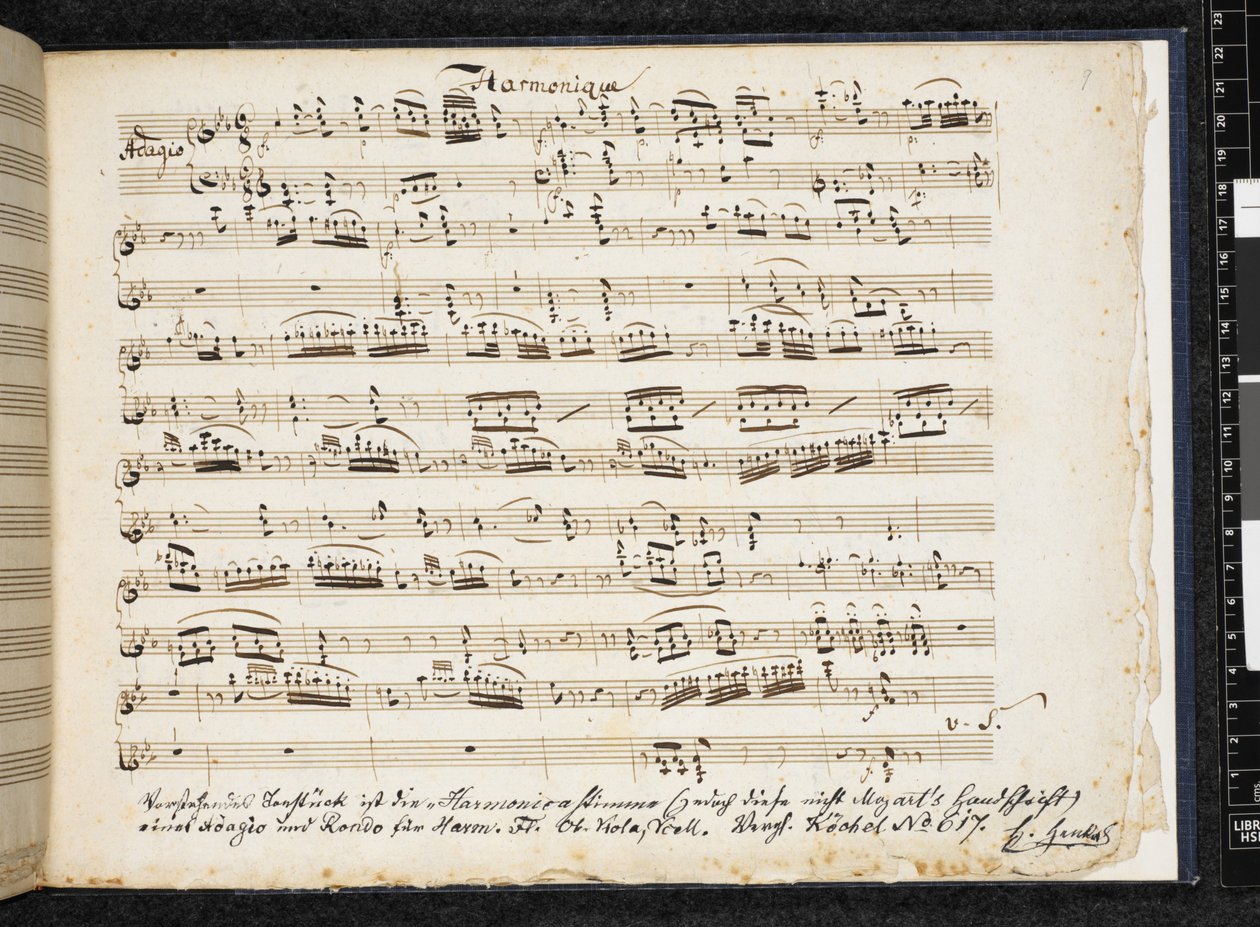 Harmonique
9
Adagio
f.
p.
f.
p.
f.
p.
p
f.
p
f.
f.
f.
v. S.
Vorstehendes Tonstück ist die „Harmonica stimme (jedoch diese nicht Mozart's Handschrift)
eines Adagio und Rondo für Harm. Fl. Ob. Viola, Vcell. Vergl. Köchel No. 617.
H. Henkel
23
22
21
20
19
18
17
16
15
14
13
12
11
10
9
8
7
6
5
4
3
2
1
cms